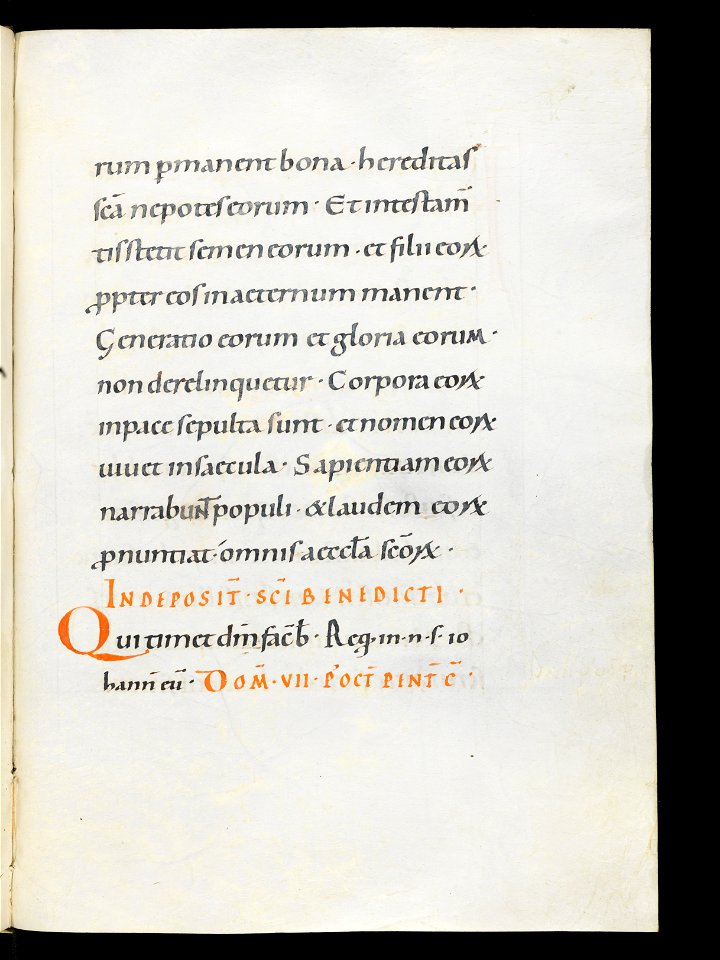 rum ꝑmanent bona · hereditas
sc̄a nepotes eorum · Et intestam̄
tis stetit semen eorum · et filii eoꝝ ·
ꝓpter eos in aeternum manent ·
Generatio eorum et gloria eorum ·
non derelinquetur · Corpora eoꝝ
inpace sepulta sunt · et nomen eoꝝ
uiuet insaecula · Sapientiam eoꝝ
narrabunt populi · & laudem eoꝝ
ꝓnuntiat · omnis aeccl̄a sc̄oꝝ ·
IN DEPOSIT̄ · SC̄I BENEDICTI ·
Qui timet dn̄m fac̄ b̄ · Req · in · n · s · io
hann̄ eū · DOM̄ · VII · P' OCT̄ PENT̄ C̄ ·